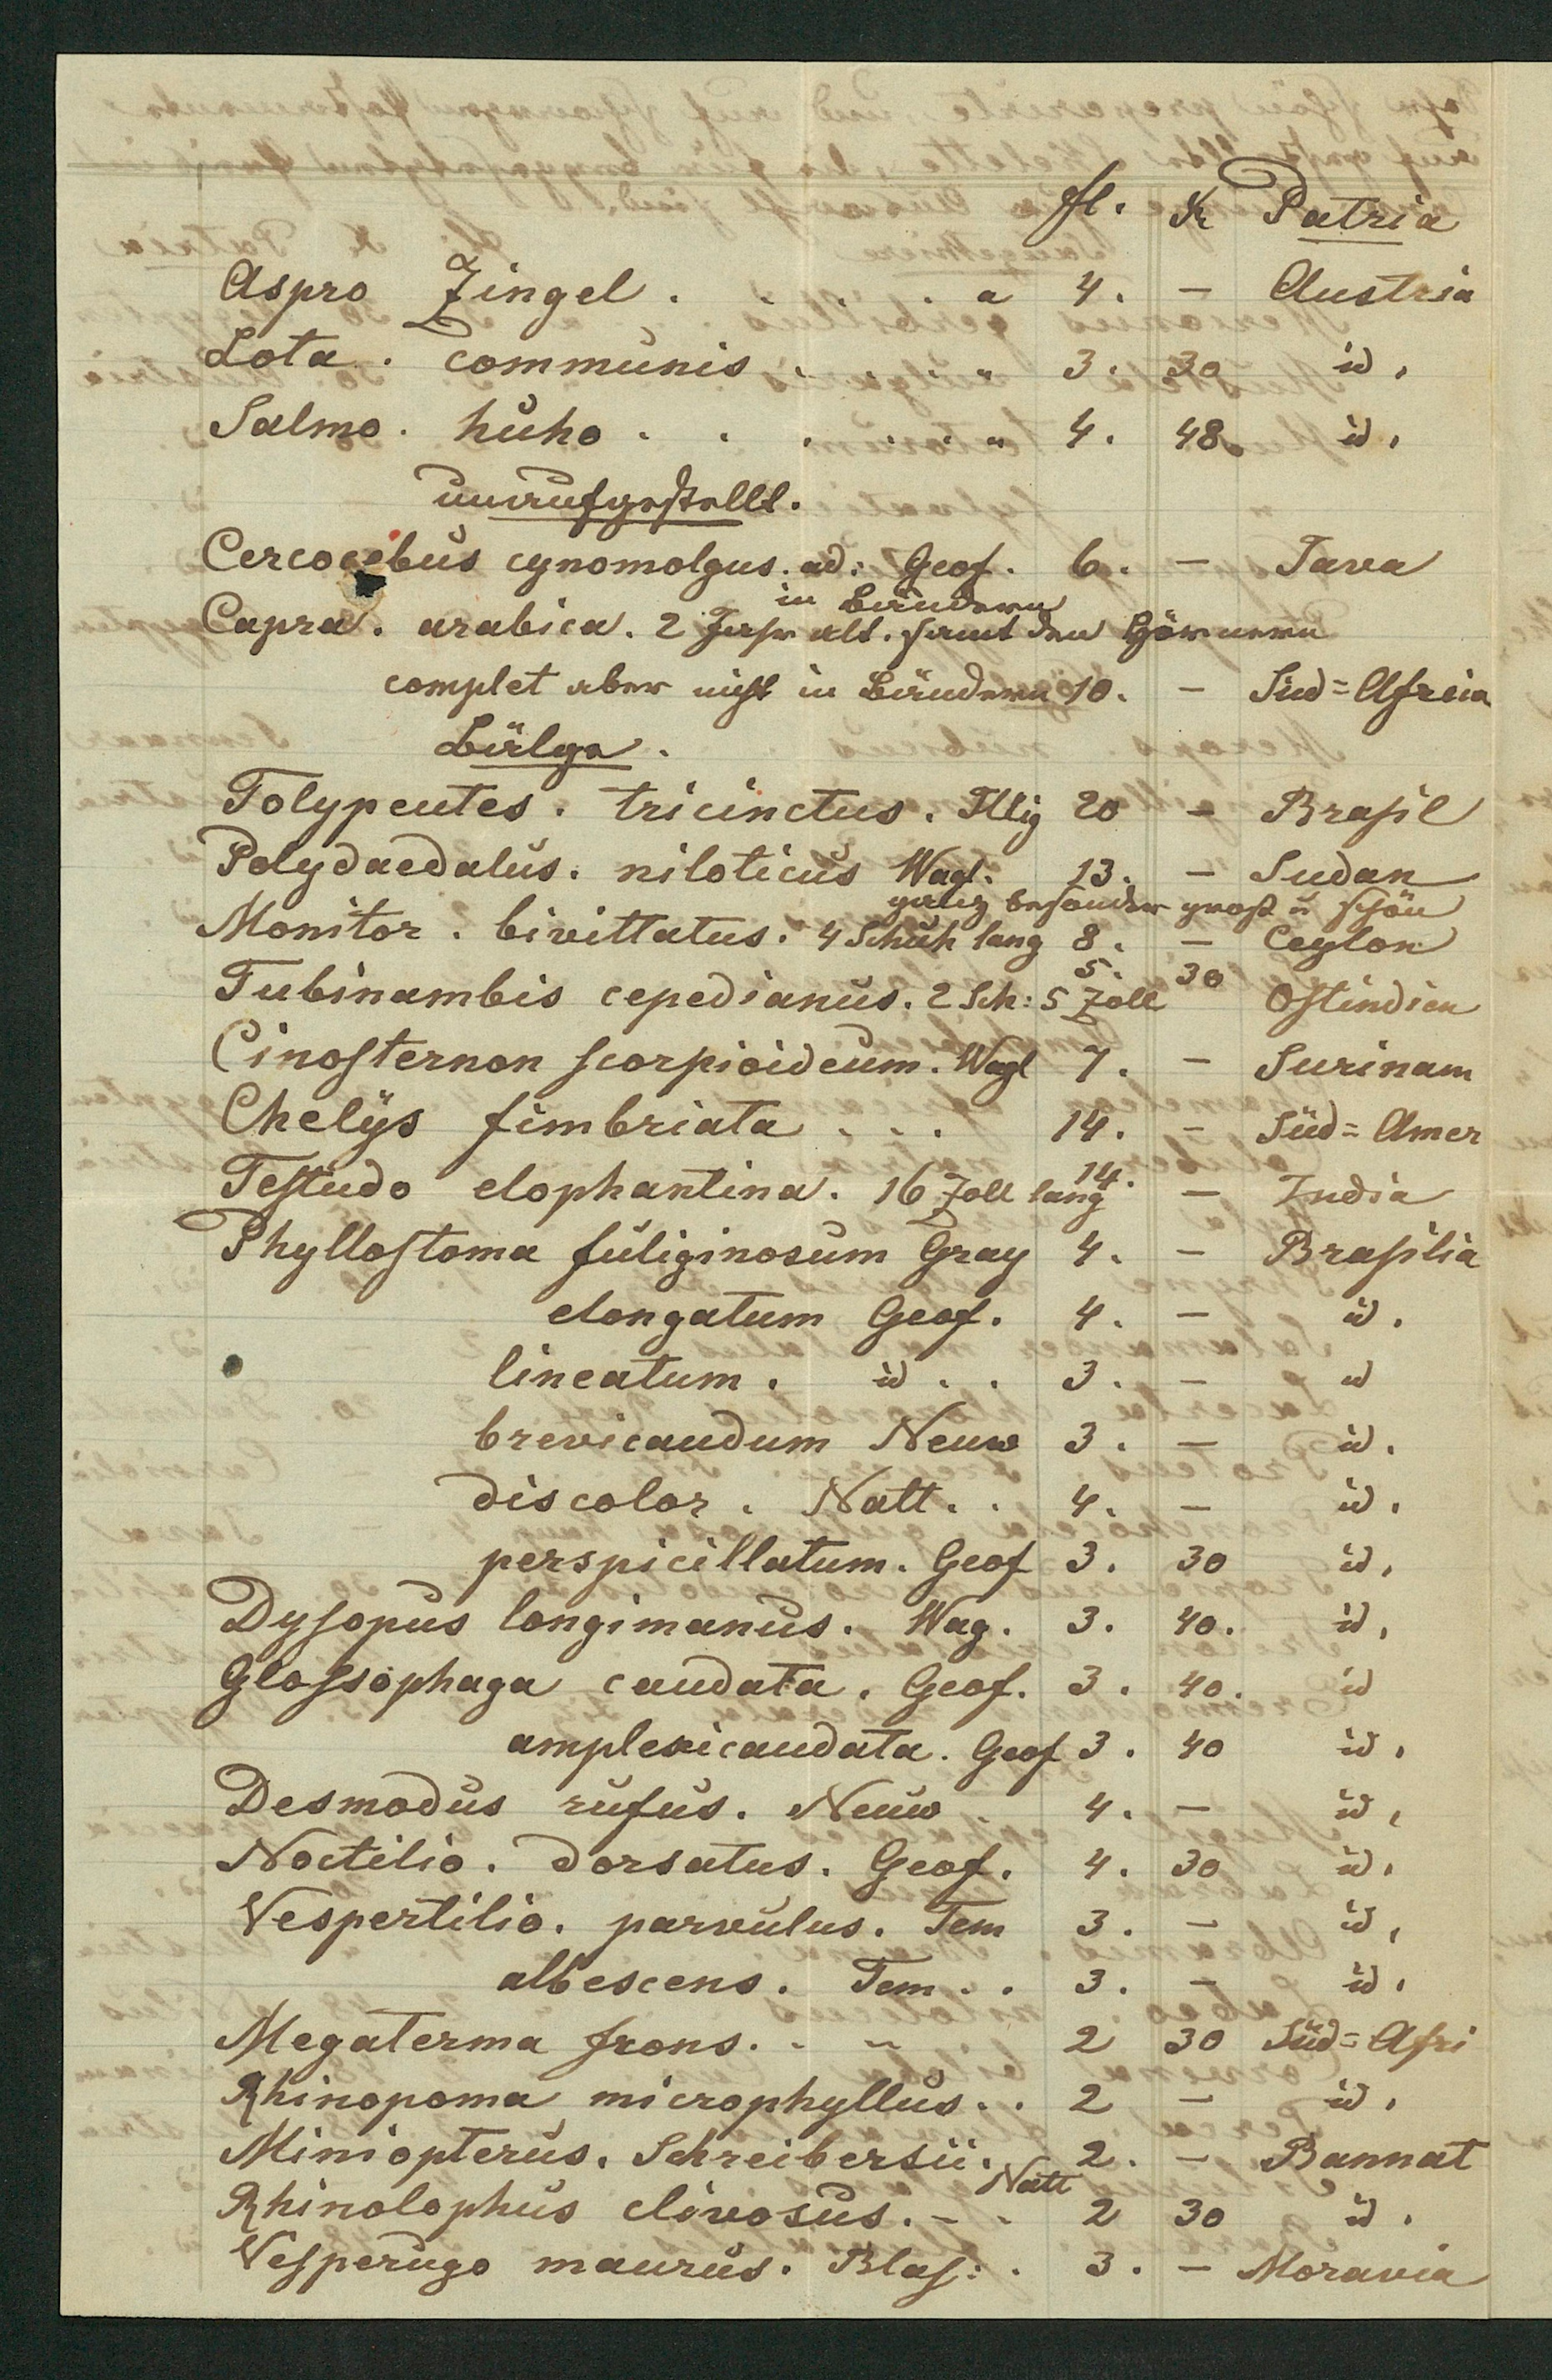 fl. Kr Patria
Aspro Zingel . . . . . a 4. — Austria
Lota. communis . . . . " 3. 30 id.
Salmo. hucho . . . . . " 4. 48. id.
unaufgestellt.
Cercocebus cynomolgus. ad: Geof. 6. — Java
in Bändern
Capra. arabica. 2 Jahr alt. samt den Hörnern
complet aber nicht in Bändern 10. — Süd=Africa
Bälge.
Tolypeutes. tricinctus. Illig 20 — Brasil
Polydaedalus. niloticus Wagl. 13. — Sudan
ganz besonder groß u schön
Monitor. bivittatus. 4 Schuh lang 8. — Ceylon
Tubinambis cepedianus. 2 Sch: 5 Zoll 5. 30 Ostindien
Cinosternon scorpioideum. Wagl 7. — Surinam
Chelÿs fimbriata . . . 14. — Süd=Amer
Testudo elophantina. 16 Zoll lang 14. — India
Phyllostoma fuliginosum Gray 4. — Brasilia
elongatum Geof. 4. — id.
lineatum. id . . 3. — id
brevicaudum Neuw 3. — id.
discolor. Natt. . 4. — id.
perspicillatum. Geof 3. 30 id.
Dysopus longimanus. Wag. 3. 40. id.
Glossophaga caudata. Geof. 3. 40. id
amplexicaudata. Geof 3. 40 id.
Desmodus rufus. Neuw . 4. — id.
Noctilio. dorsatus. Geof. 4. 30 id.
Vespertilio. parvulus. Tem 3. — id.
albescens. Tem . . 3. — id.
Megaterma frons. . " 2 30 Süd=Afri
Rhinopoma microphyllus. . 2 — id.
Miniopterus. Schreibersii. Natt 2. — Bannat
Rhinolophus clivosus. - . 2 30 id.
Vesperugo maurus. Blas: . 3. — Moravia